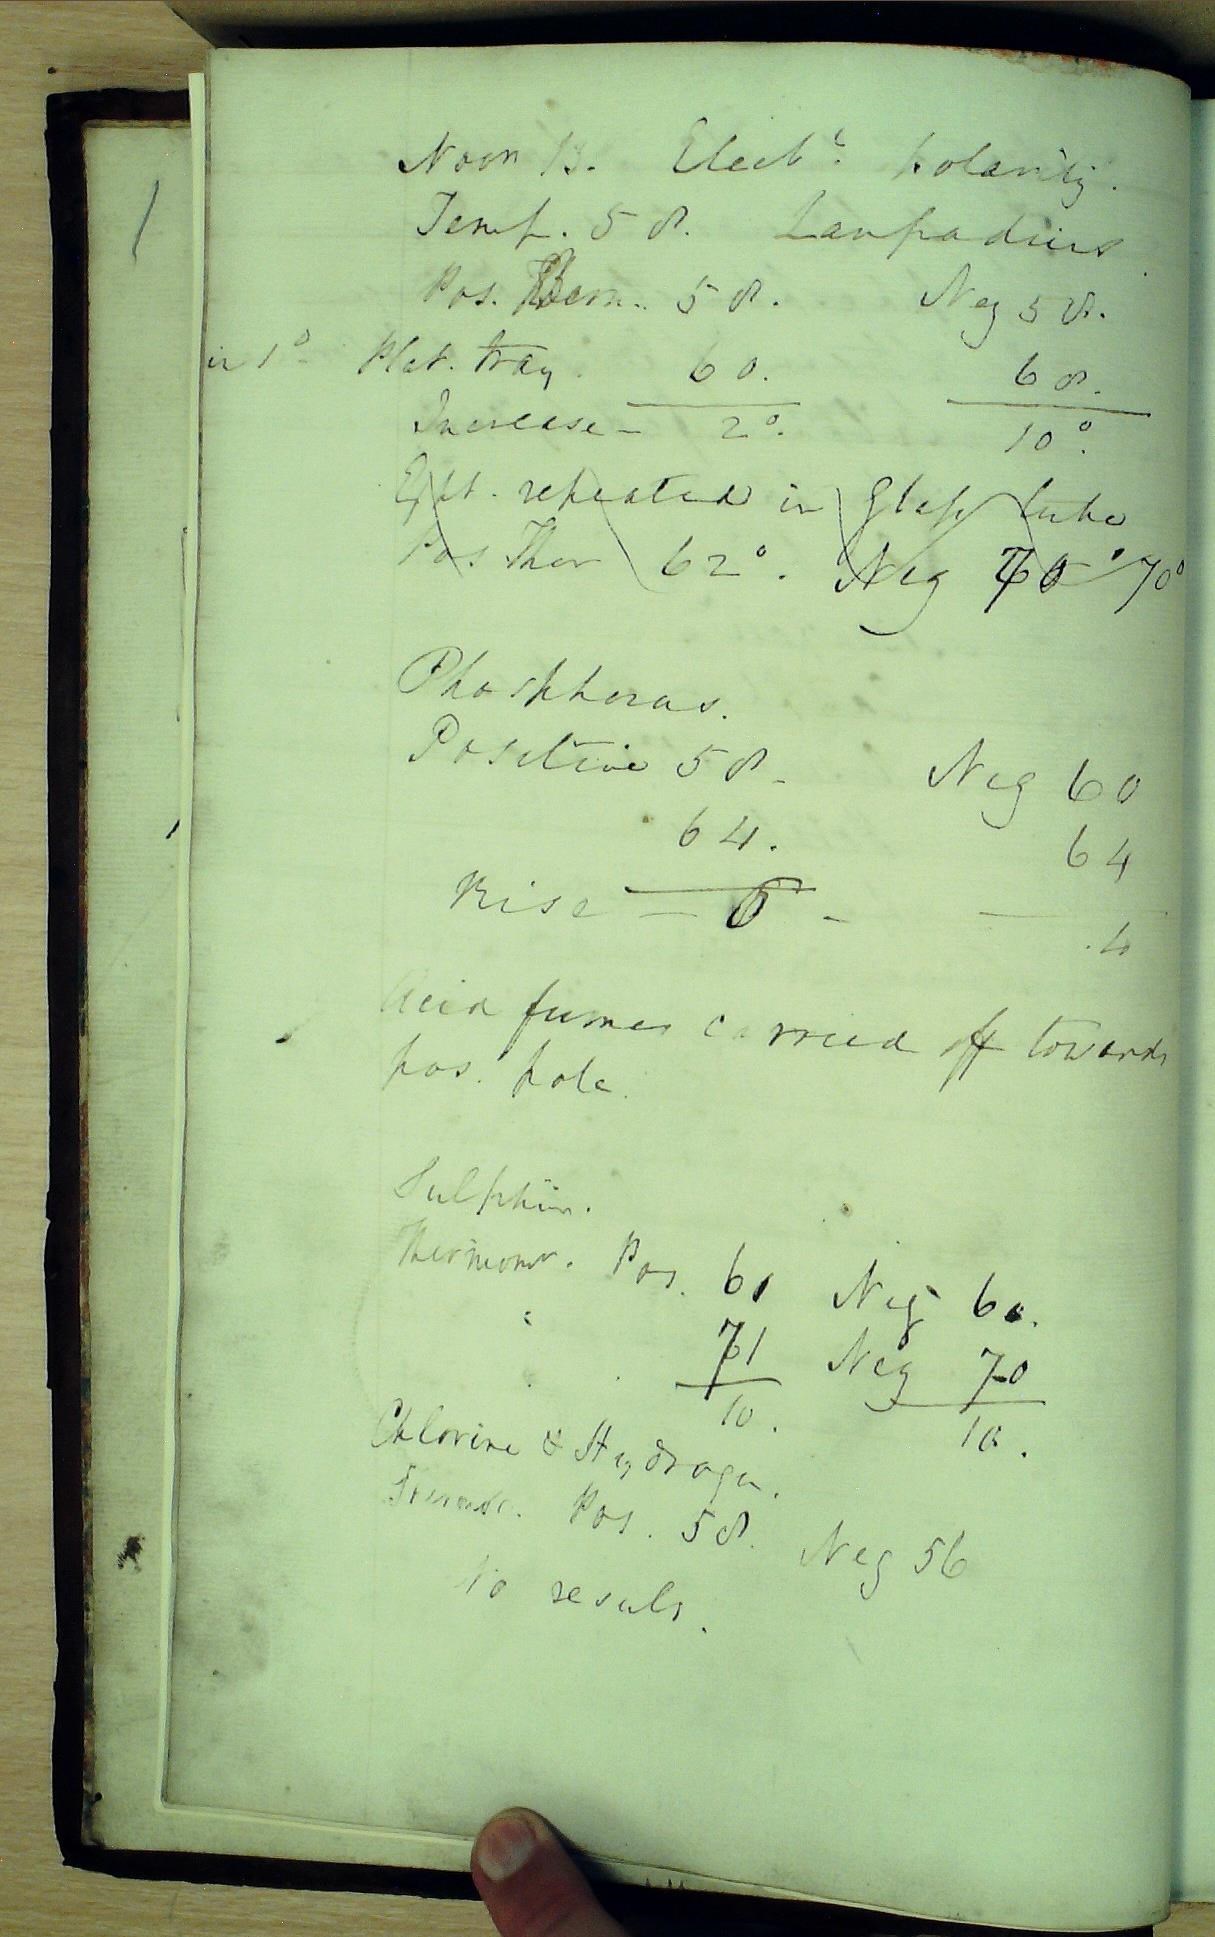 Noon 13. Elect.l polarity.
Temp. 58. Lampadius
Pos. Therm. 58. Neg 58.
in 1° Plat. tray. 60. 68.
Increase - 2°. 10°.
Expt. repeated in Glass tube
Pos Ther 62°. Neg 70° 70°
Phosphorus.
Positive 58 - Neg 60
64. 64
Rise - 6 - 4
Acid fumes carried off towards
pos. pole.
Sulphur.
Thermomr. Pos. 61 Neg 60.
" 71 Neg 70
10. 10.
Chlorine & Hydrogen.
Pos. 58. Neg 56
No result.